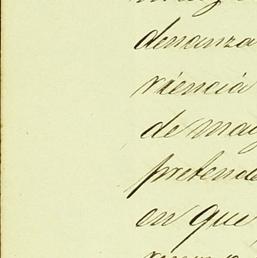 denanza
riencia
de may
pretende
en que